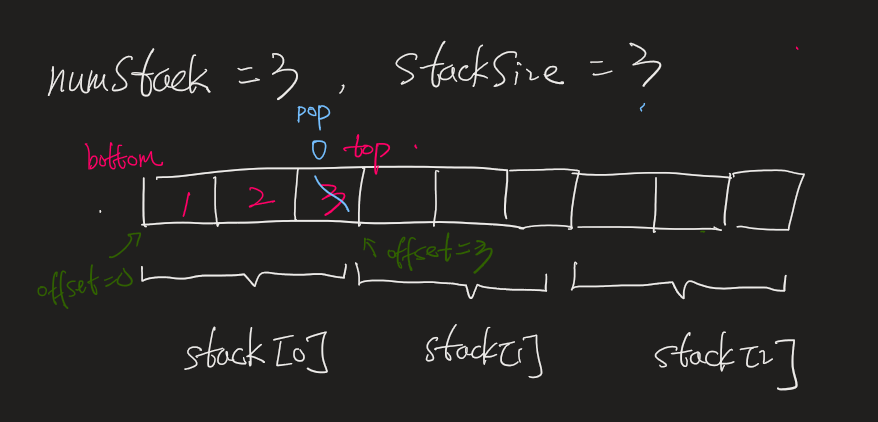 numStack = 3, StackSize = 3
pop
0
bottom
top
1 2 3
offset=0
offset=3
stack[0] stack[1] stack[2]